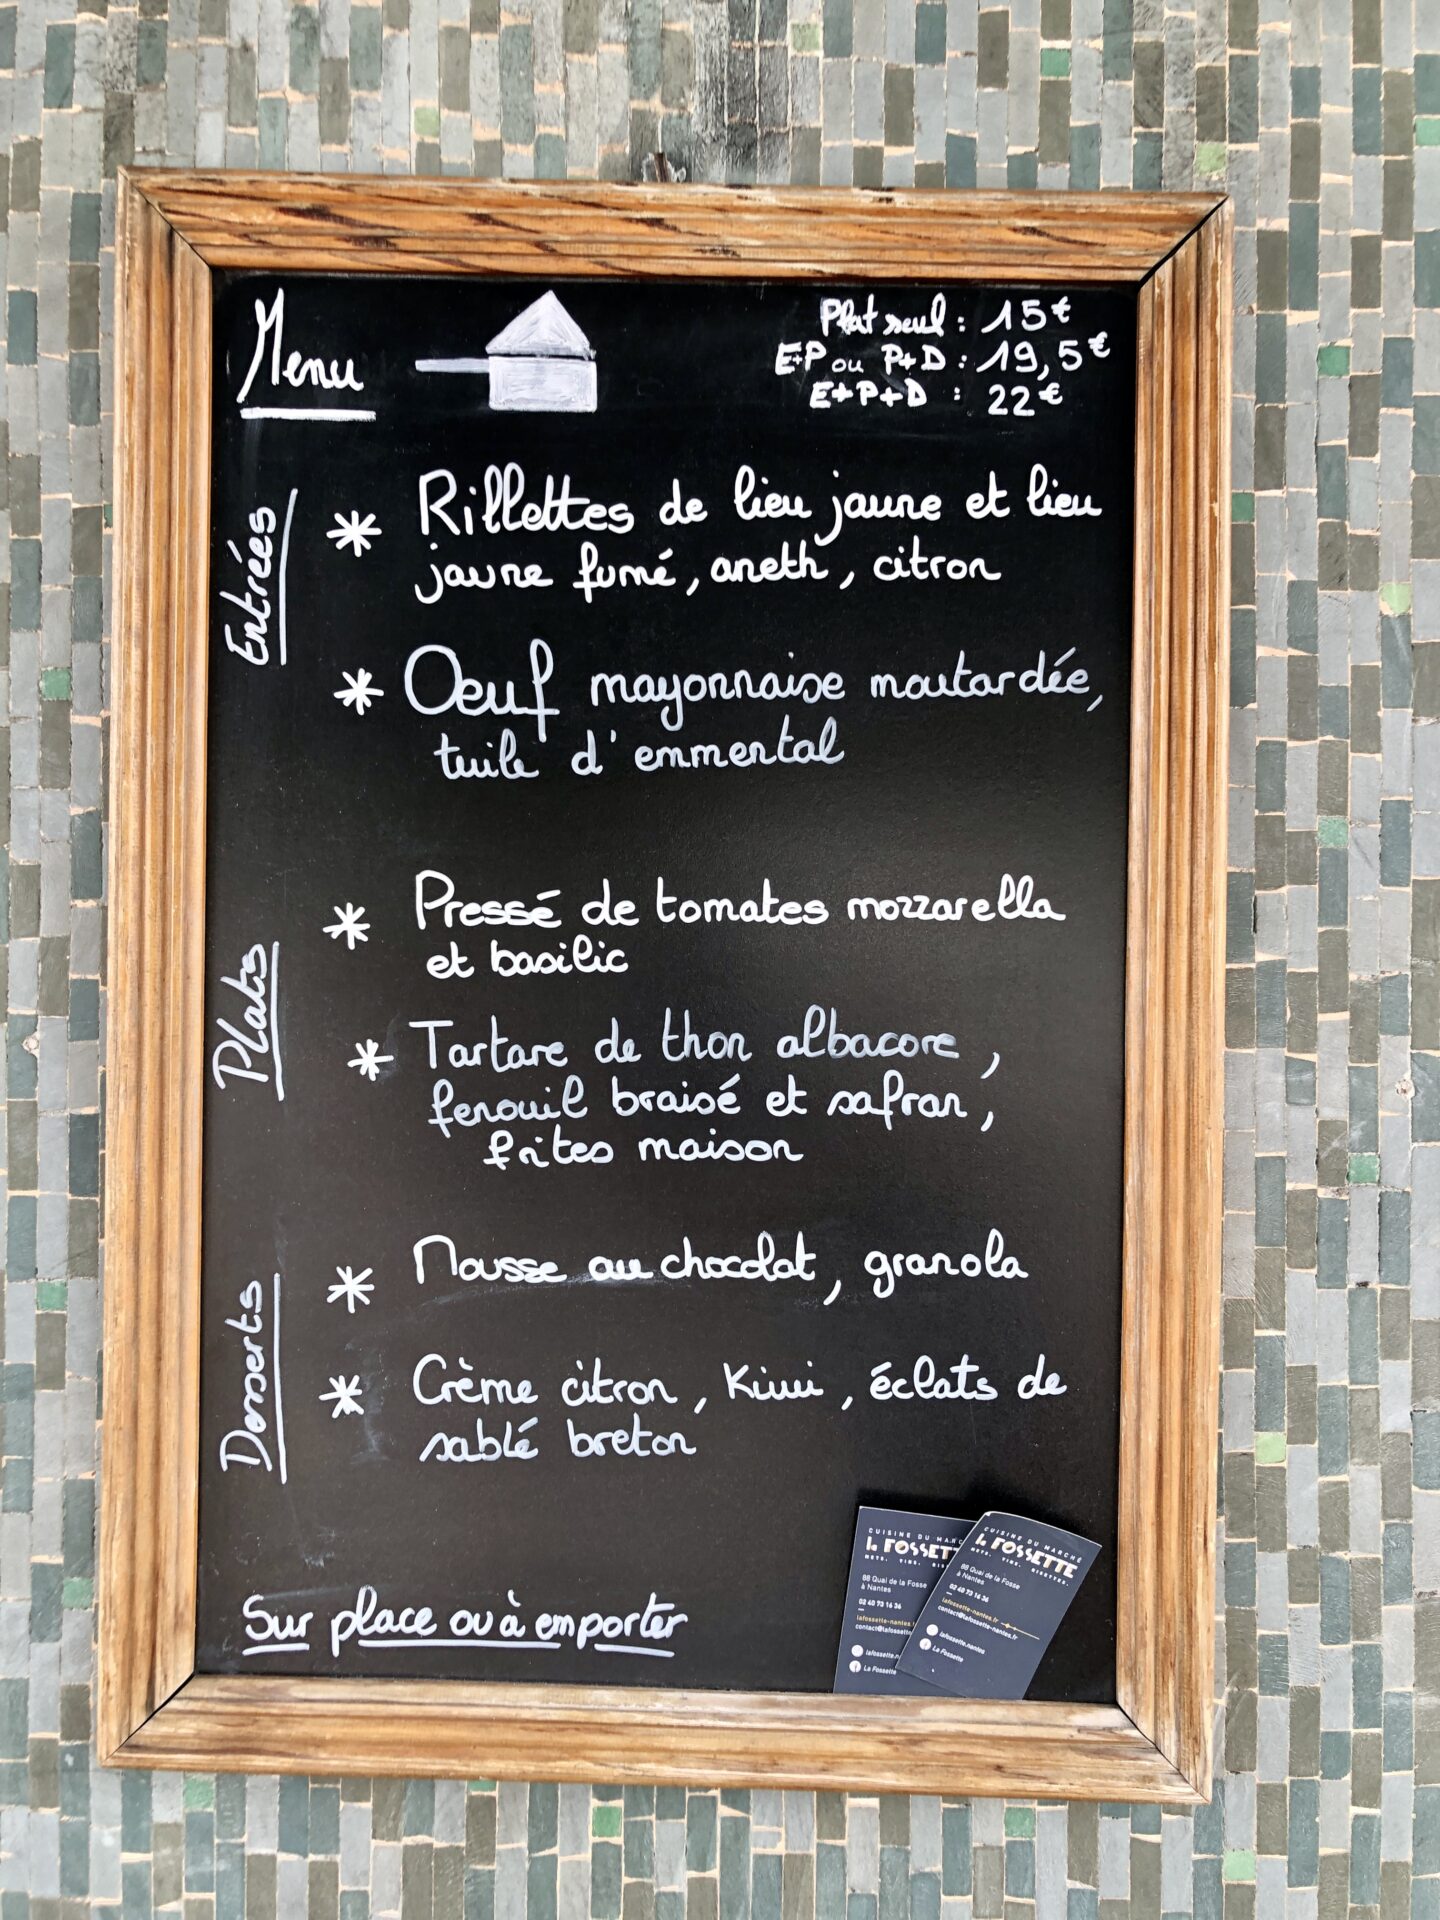 Menu
Plat seul : 15€
E+P ou P+D : 19,5€
E+P+D : 22€
Entrées
* Rillettes de lieu jaune et lieu
jaune fumé, aneth, citron
* Oeuf mayonnaise moutardée,
tuile d'emmental
Plats
* Pressé de tomates mozzarella
et basilic
* Tartare de thon albacore,
fenouil braisé et safran,
frites maison
Desserts
* Mousse au chocolat, granola
* Crème citron, Kiwi, éclats de
sablé breton
Sur place ou à emporter
CUISINE DU MA
la FOSSET
METS. VINS. RIS
88 Quai de la Fosse
à Nantes
02 40 73 16 36
lafossette-nantes.
contact@lafossette
lafossette.n
La Fossette
CUISINE DU MARCHÉ
la FOSSETTE
METS. VINS. RISETTES.
88 Quai de la Fosse
à Nantes
02 40 73 16 36
lafossette-nantes.fr
contact@lafossette-nantes.fr
lafossette.nantes
La Fossette